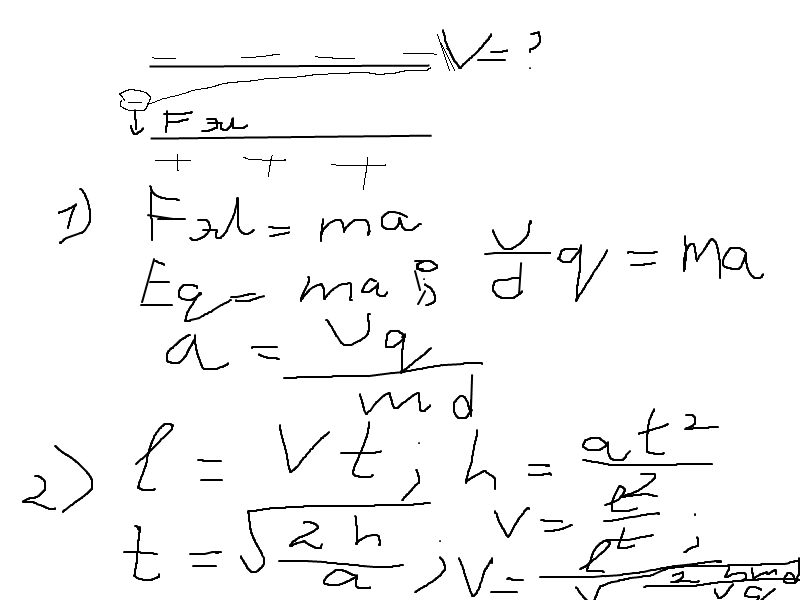 − − − − V = ?
−
Fэл
+ + +
1) Fэл = ma
Eq = ma ; U/d q = ma
a = Uq/md
2) l = Vt ; h = at²/2
t = √(2h/a) ; V = l/t ;
V = l/√(2hmd/Uq)